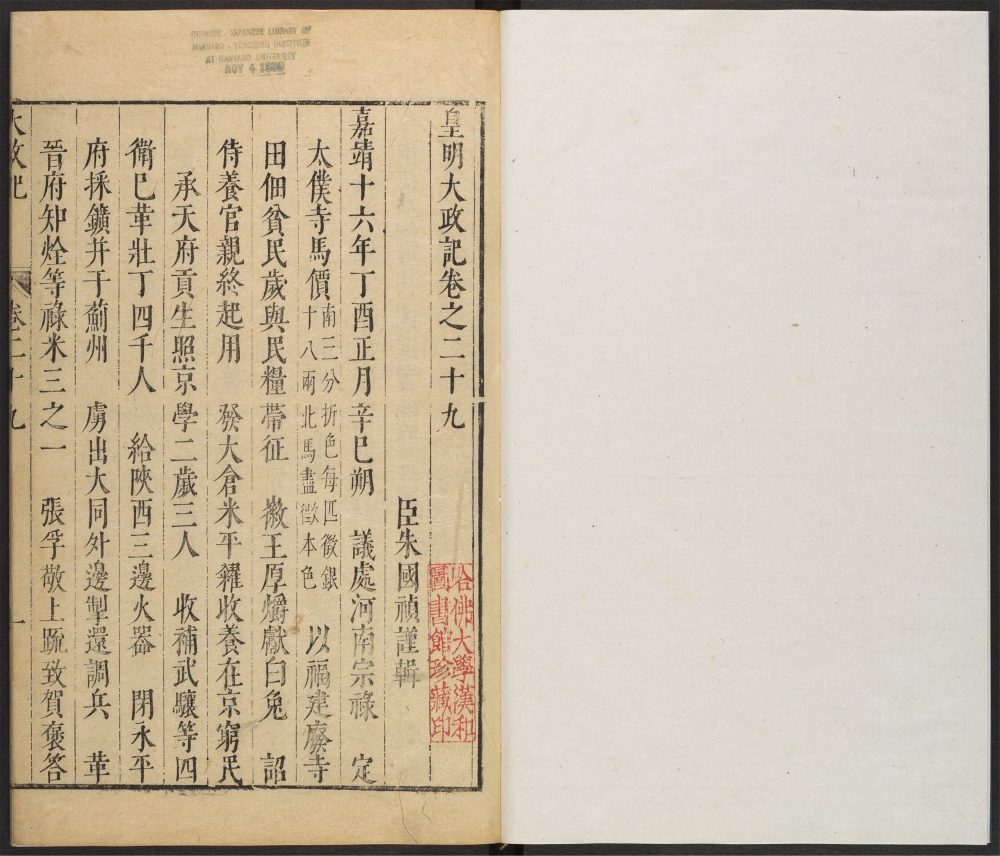 CHINESE - JAPANESE LIBRARY OF
HARVARD - YENCHING INSTITUTE
AT HARVARD UNIVERSITY
NOV 4
皇明大政記卷之二十九
臣朱國禎謹輯
嘉靖十六年丁酉正月辛巳朔　議處河南宗祿　定
太僕寺馬價南三分折色每匹徵銀十八兩北馬盡徵本色　以福建廢寺
田佃貧民歲與民糧帶征　徽王厚爝獻白兔　詔
侍養官親終起用　發大倉米平糴收養在京窮民
承天府貢生照京學二歲三人　收補武驤等四
衛巳革壯丁四千人　給陝西三邊火器　閉永平
府採鑛并于薊州　虜出大同外邊掣還調兵　革
晉府知烇等祿米三之一　張孚敬上疏致賀褒答
大政記　卷二十九　一
哈佛大學漢和
圖書館珍藏印